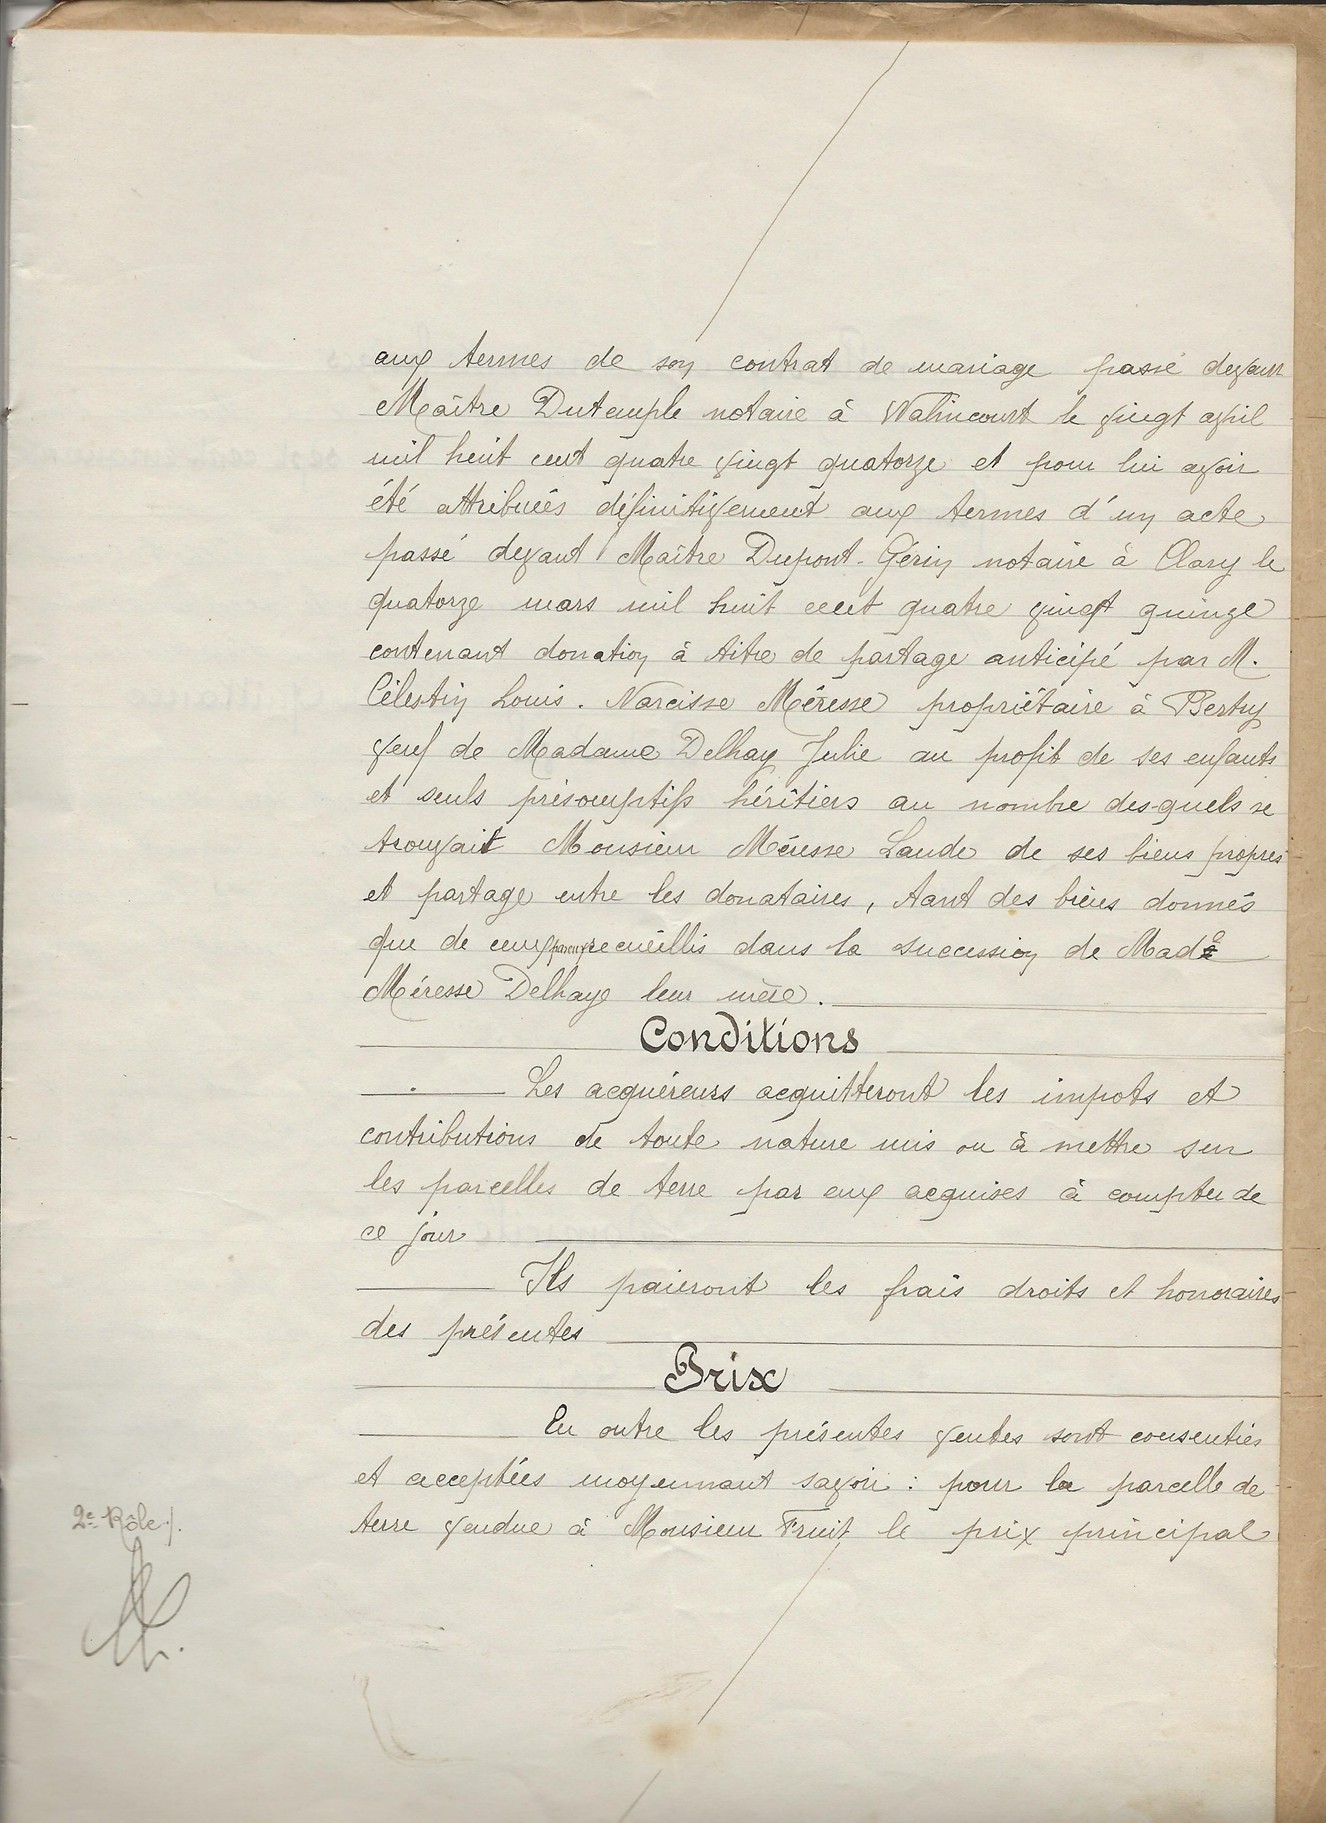 aux termes de son contrat de mariage passé devant
Maître Dutemple notaire à Walincourt le vingt avril
mil huit cent quatre vingt quatorze et pour lui avoir
été attribuées définitivement aux termes d'un acte
passé devant Maître Dupont-Gérin notaire à Clary le
quatorze mars mil huit cent quatre vingt quinze
contenant donation à titre de partage anticipé par M.
Célestin Louis. Narcisse Méresse propriétaire à Bertry
veuf de Madame Delhay Julie au profit de ses enfants
et seuls présomptifs héritiers au nombre des-quels se
trouvait Monsieur Méresse Lande de ses biens propres
et partage entre les donataires, tant des biens donnés
que de ceux par eux recueillis dans la succession de Made
Méresse Delhaye leur mère.
Conditions
Les acquéreurs acquitteront les impots et
contributions de toute nature mis ou à mettre sur
les parcelles de terre par eux acquises à compter de
ce jour
Ils paieront les frais droits et honoraires
des présentes
Prix
En outre les présentes ventes sont consenties
et acceptées moyennant savoir : pour la parcelle de
terre vendue à Monsieur Fruit le prix principal
2e Rôle /.